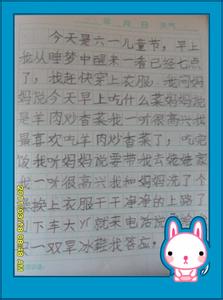 年 月 日
今天是六一儿童节，早上
我从睡梦中醒来一看已经七点
了，我赶快穿上衣服。我问妈
妈说今天早上吃什么菜妈妈说
是羊肉炒香菜我一听很高兴我
最喜欢吃羊肉炒香菜了，吃完
饭我听妈妈说要带我去姥姥家
我一听很高兴我和妈妈洗了个
澡换上衣服干干净净的上路了
下车大 就来电话说给
一双旱冰鞋我答应